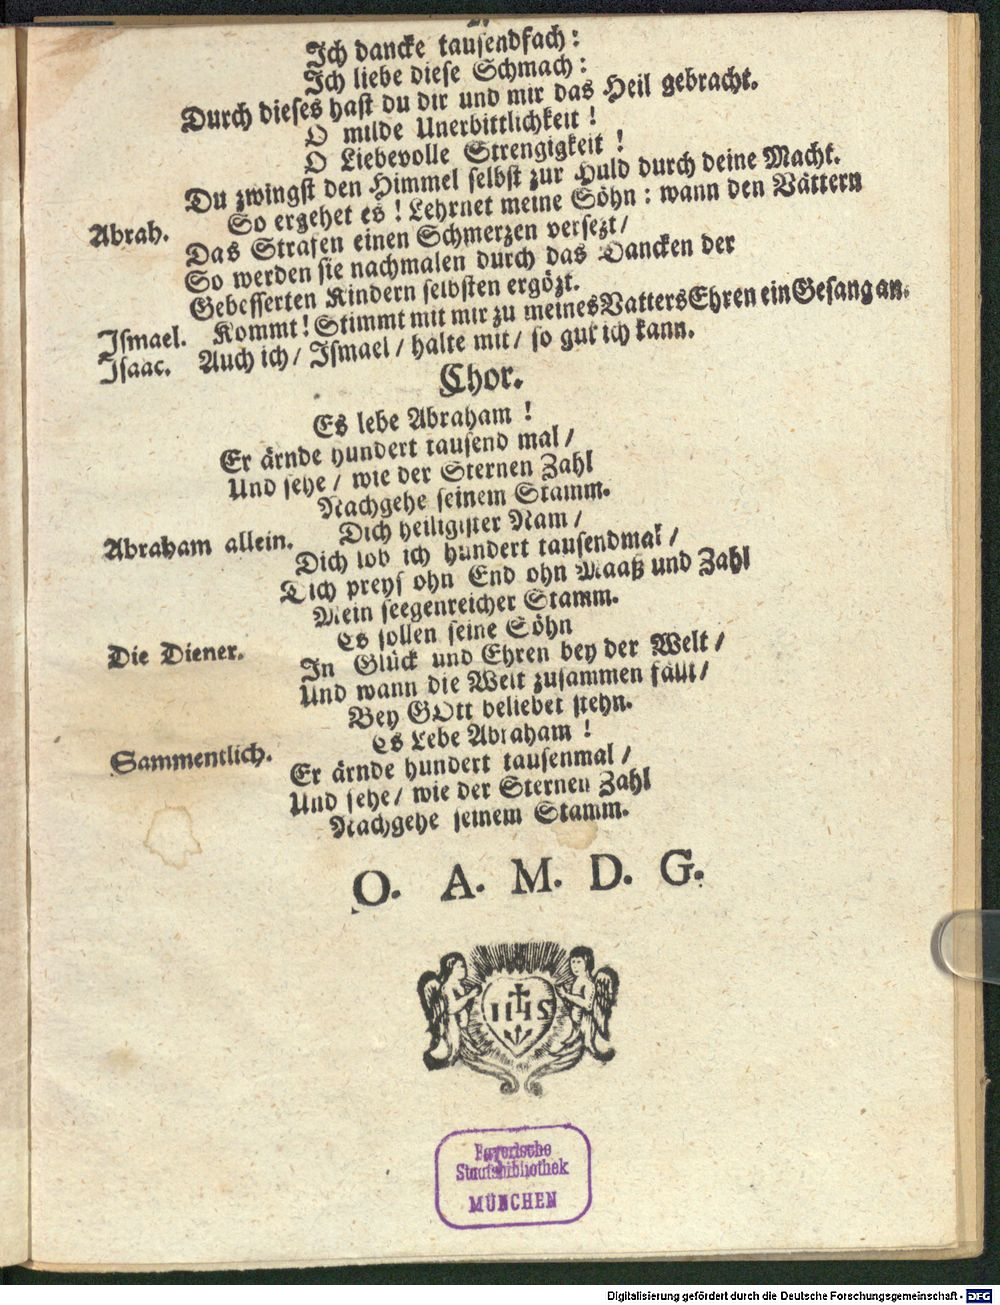 Ich dancke tausendfach:
Ich liebe diese Schmach:
Durch dieses hast du dir und mir das Heil gebracht.
O milde Unerbittlichkeit!
O Liebevolle Strengigkeit!
Du zwingst den Himmel selbst zur Huld durch deine Macht.
Abrah. So ergehet es! Lehrnet meine Söhn: wann den Vättern
Das Strafen einen Schmerzen versezt/
So werden sie nachmalen durch das Dancken der
Gebesserten Kindern selbsten ergözt.
Ismael. Kommt! Stimmt mit mir zu meines Vatters Ehren ein Gesang an.
Isaac. Auch ich/ Ismael/ halte mit/ so gut ich kann.
Chor.
Es lebe Abraham!
Er ärnde hundert tausend mal/
Und sehe/ wie der Sternen Zahl
Nachgehe seinem Stamm.
Abraham allein. Dich heiligister Nam/
Dich lob ich hundert tausendmal/
Dich preys ohn End ohn Maaß und Zahl
Mein seegenreicher Stamm.
Die Diener. Es sollen seine Söhn
In Glück und Ehren bey der Welt/
Und wann die Welt zusammen fällt/
Bey GOtt beliebet stehn.
Sammentlich. Es Lebe Abraham!
Er ärnde hundert tausenmal/
Und sehe/ wie der Sternen Zahl
Nachgehe seinem Stamm.
O. A. M. D. G.
IHS
Bayerische
Staatsbibliothek
MÜNCHEN
Digitalisierung gefördert durch die Deutsche Forschungsgemeinschaft - DFG